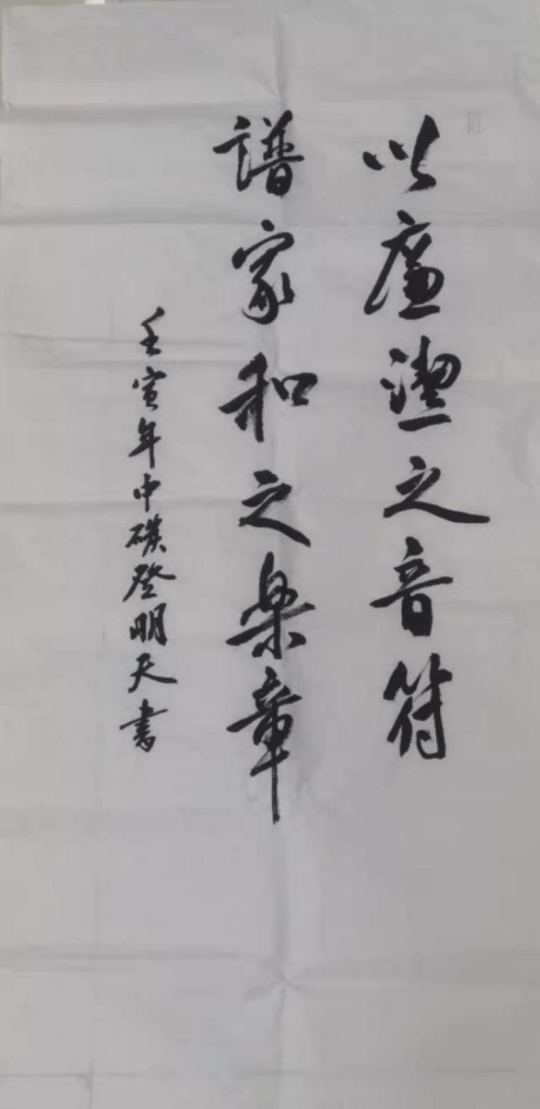 以廉潔之音符
譜家和之樂章
壬寅年中磺登明天書